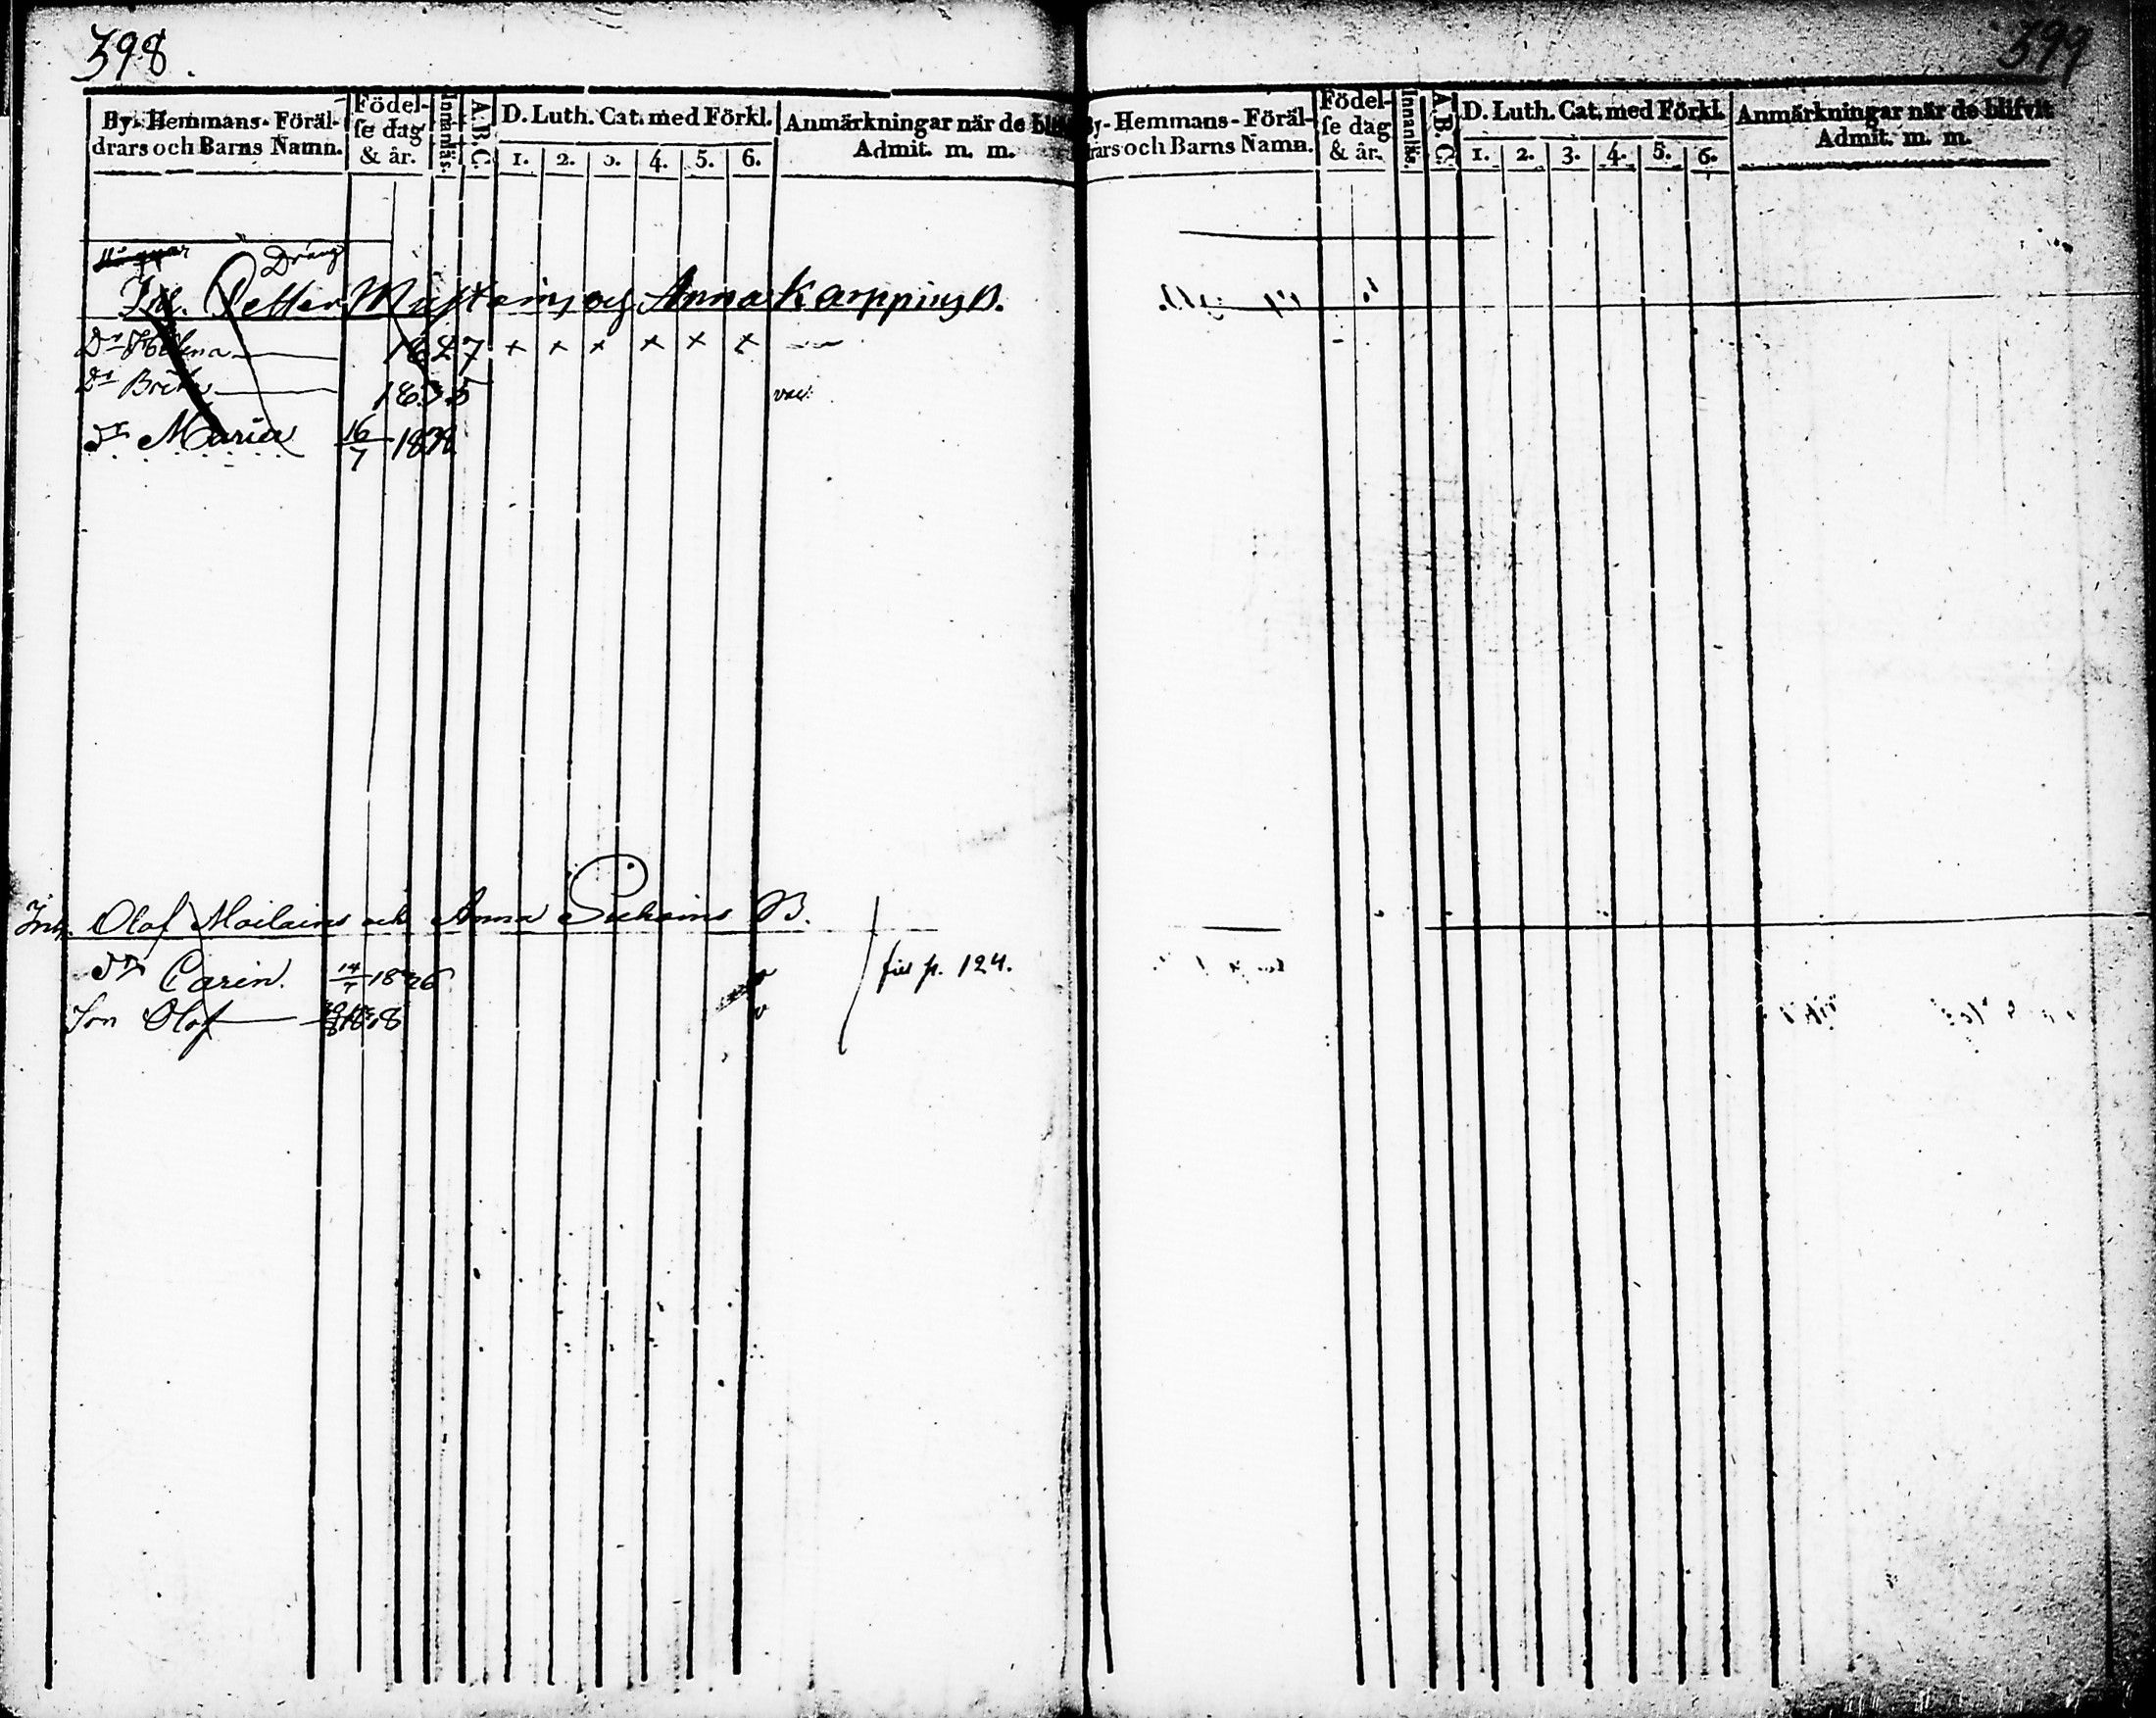 398.
By- Hemmans- Föräl-
drars och Barns Namn.
Födel-
se dag
& år.
Innanläs.
A.B.C.
D. Luth. Cat. med Förkl.
1. 2. 3. 4. 5. 6.
Anmärkningar när de
Admit. m. m.
Dräng
Petter och Anna Karppins B.
Dr Helena 1827 + + + + + +
Dr Brita 1835
Dr Maria 16/7 183
Inh. Olof Moilains och Anna B.
Dr Carin. 14/7 1836
Son Olof
p. 124.
399
By- Hemmans- Föräl-
drars och Barns Namn.
Födel-
se dag
& år.
Innanläs.
A.B.C.
D. Luth. Cat. med Förkl.
1. 2. 3. 4. 5. 6.
Anmärkningar när de blifvit
Admit. m. m.